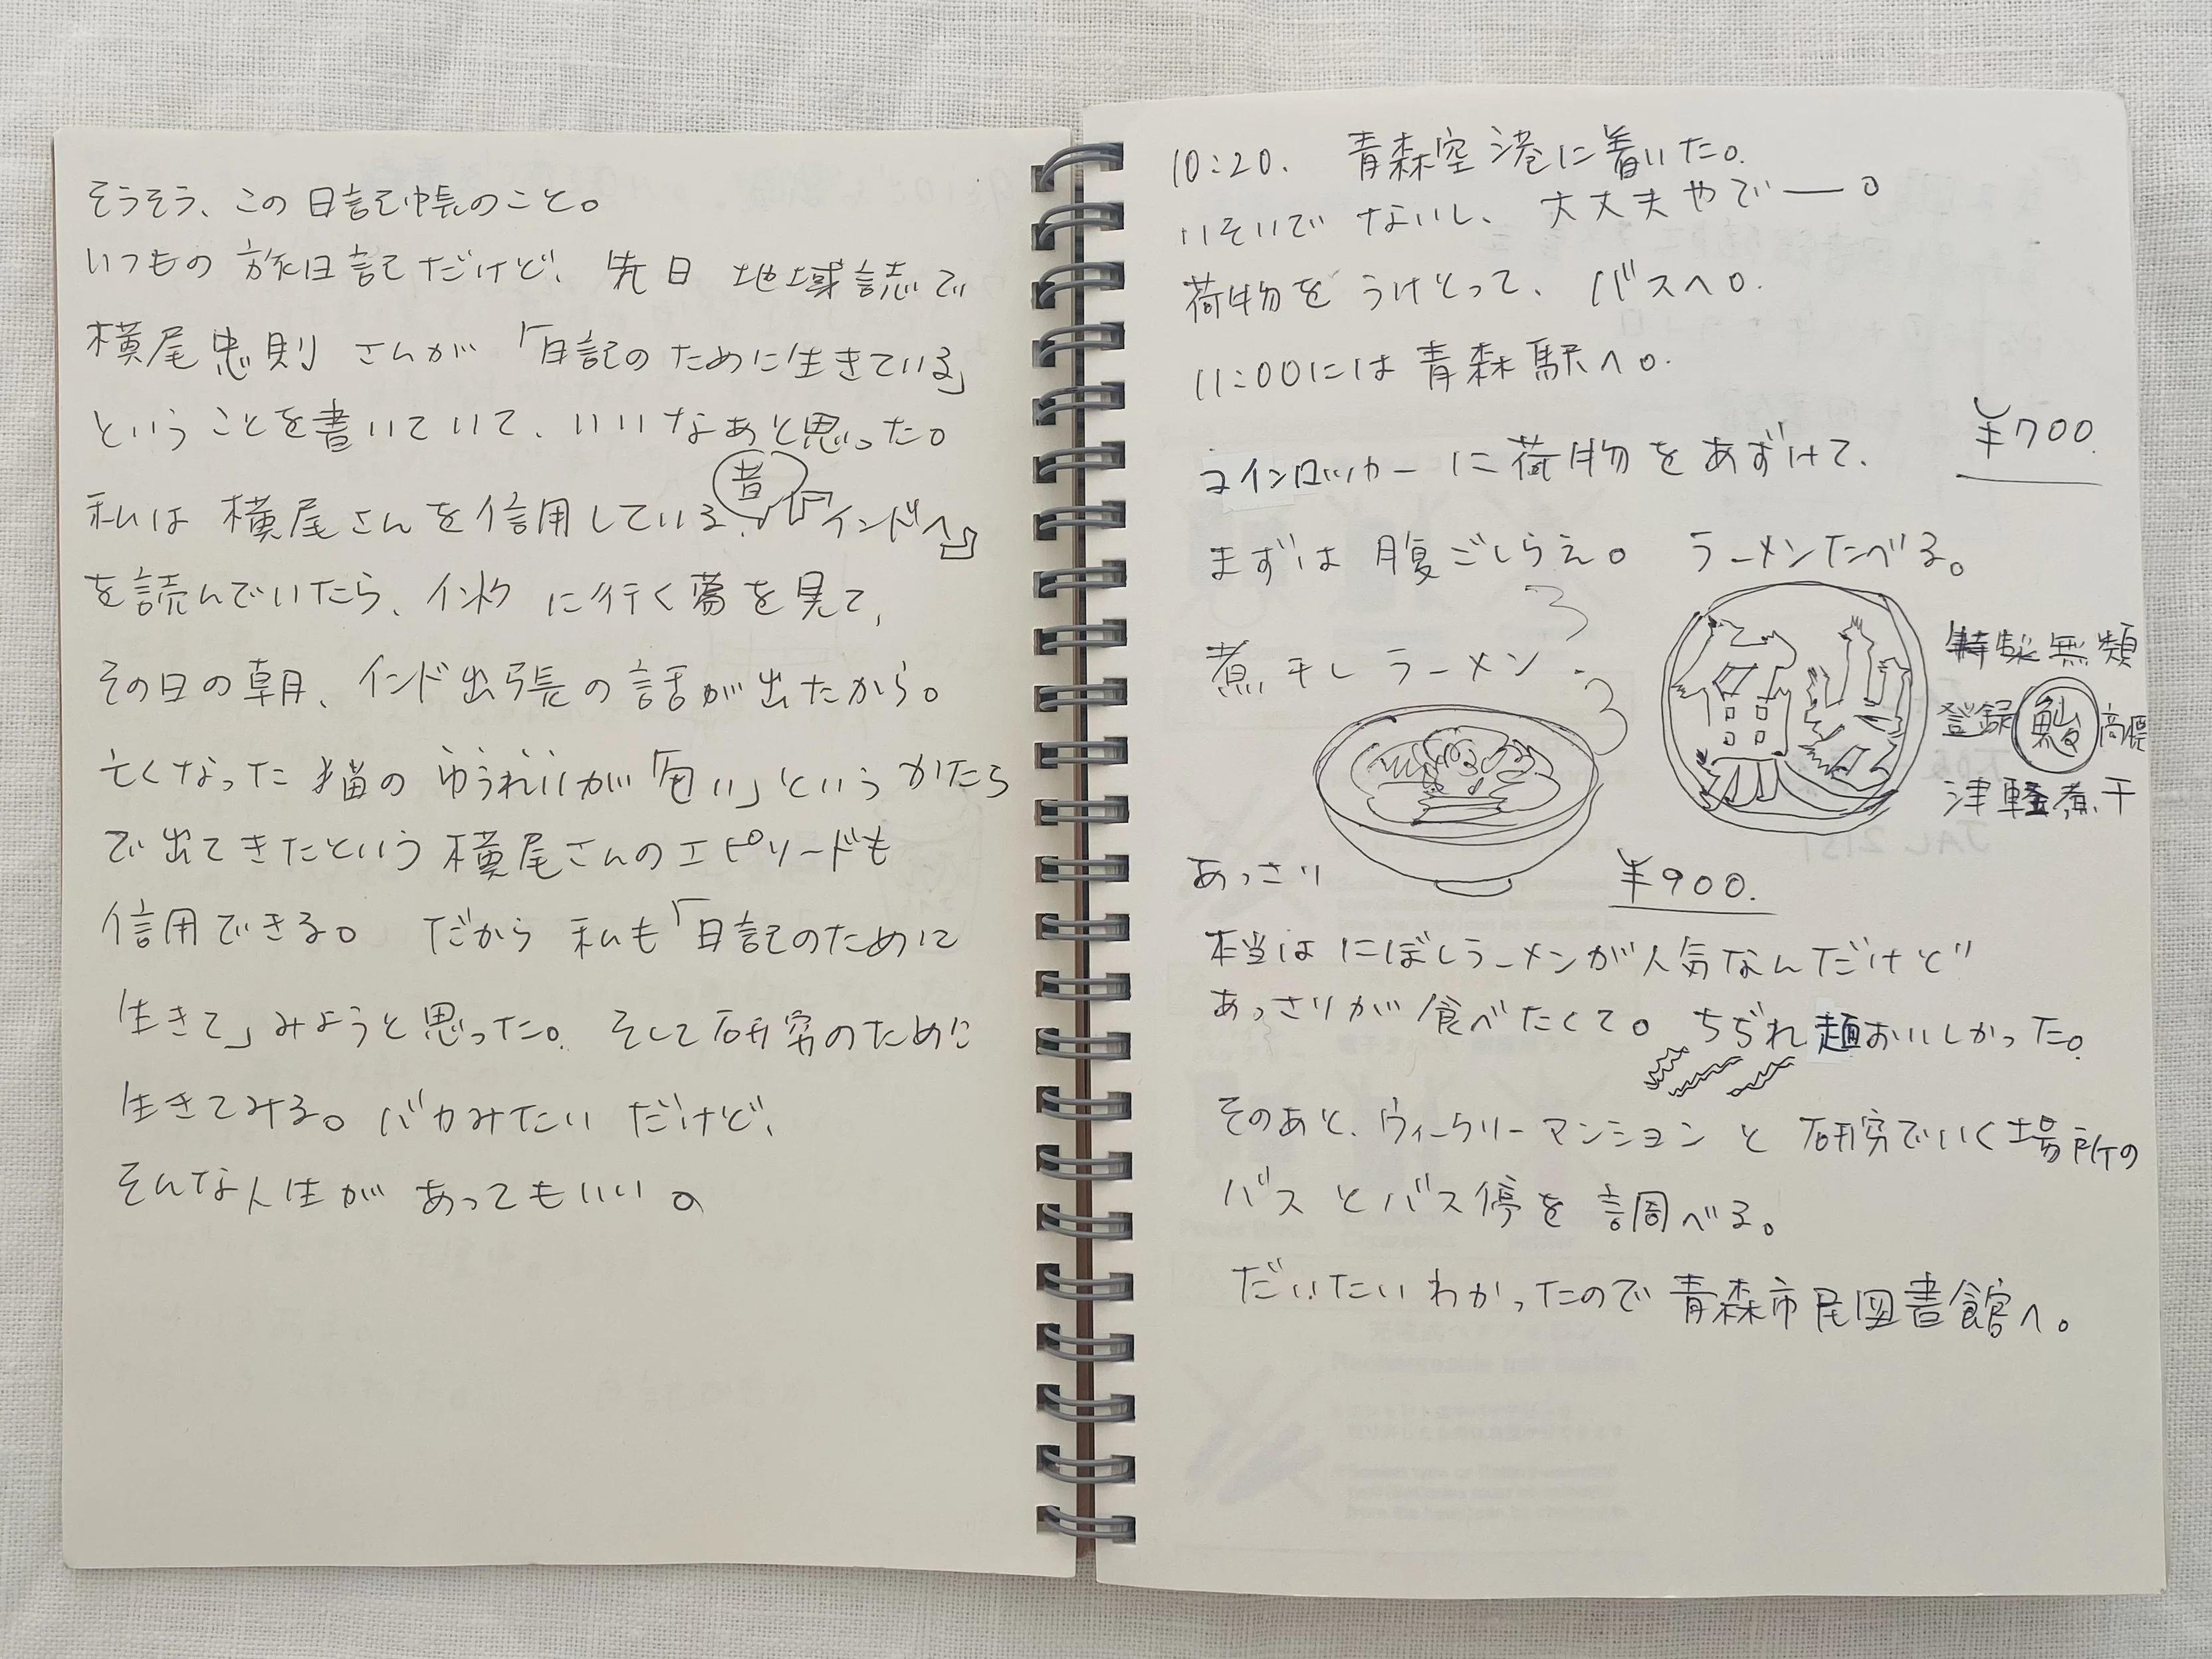 そうそう、この日記帳のこと。
いつもの旅日記だけど、先日地域誌で
横尾忠則さんが「日記のために生きている」
ということを書いていて、いいなあと思った。
私は横尾さんを信用している。昔、『インドへ』
を読んでいたら、インドに行く夢を見て、
その日の朝、インド出張の話が出たから。
亡くなった猫のゆうれいが「匂い」というかたち
で出てきたという横尾さんのエピソードも
信用できる。だから私も「日記のために
生きて」みようと思った。そして研究のために
生きてみる。バカみたいだけど、
そんな人生があってもいい。
10:20. 青森空港に着いた。
いそいでないし、大丈夫やでー。
荷物をうけとって、バスへ。
11:00には青森駅へ。
コインロッカーに荷物をあずけて、 ¥700.
まずは腹ごしらえ。 ラーメンたべる。
煮干しラーメン.
特製無類
登録 鮻 高優
津軽煮干
あっさり ¥900.
本当はにぼしラーメンが人気なんだけど
あっさりが食べたくて。ちぢれ麺おいしかった。
そのあと、ウィークリーマンションと研究でいく場所の
バスとバス停を調べる。
だいたいわかったので青森市民図書館へ。